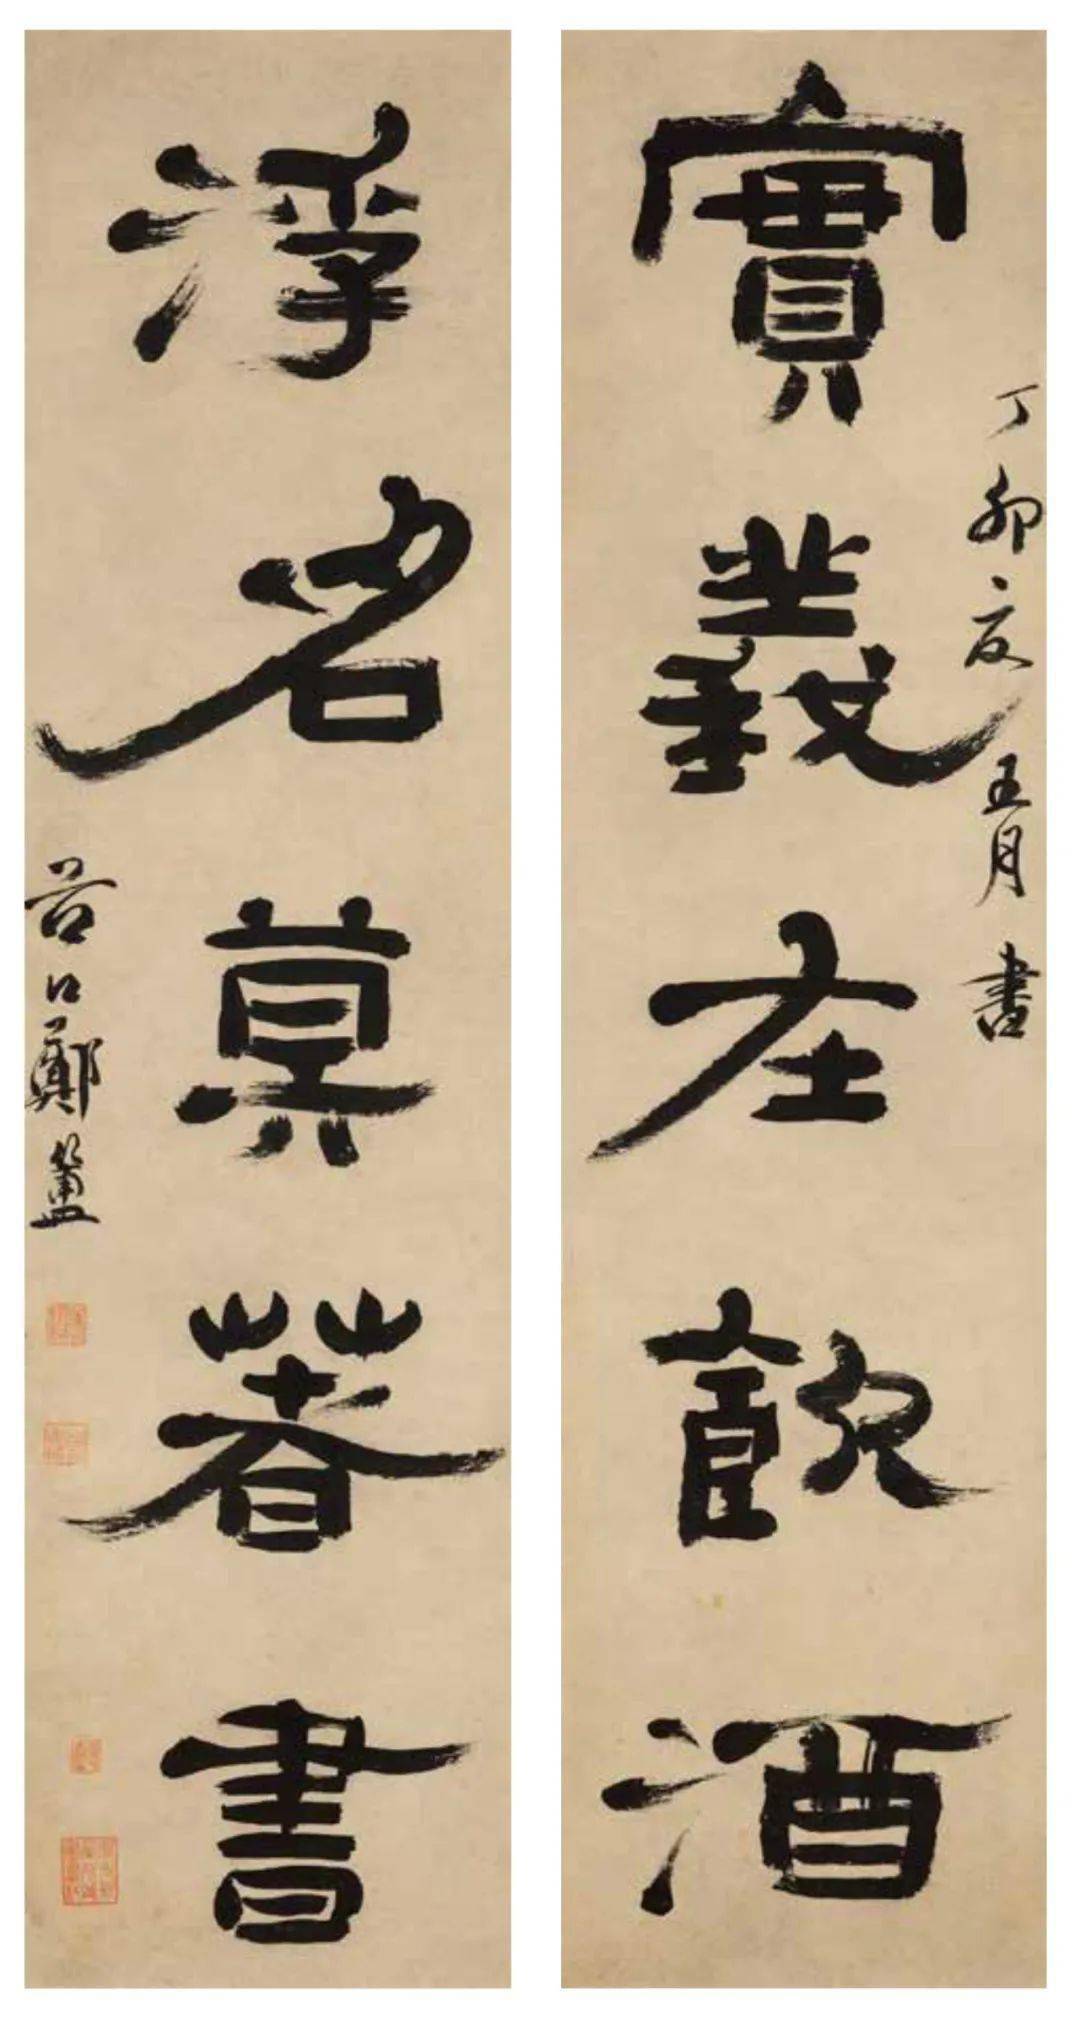 丁卯夏五月書
實義在飲酒
浮名莫著書
谷口鄭簠